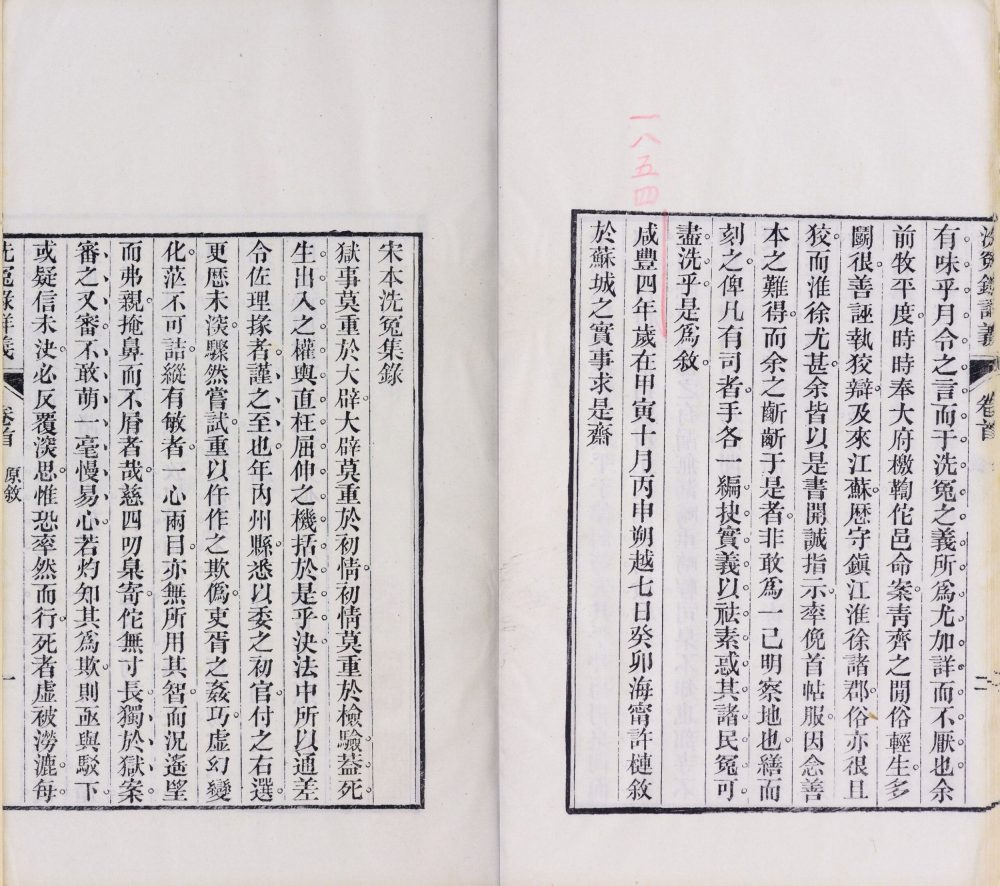 洗冤錄詳義
卷首
二
有味乎月令之言而于洗冤之義所爲尤加詳而不厭也余
前牧平度時時奉大府檄鞫佗邑命案靑齊之閒俗輕生多
鬬很善誣執狡辯及來江蘇歷守鎭江淮徐諸郡俗亦很且
狡而淮徐尤甚余皆以是書開誠指示率俛首帖服因念善
本之難得而余之齗齗于是者非敢爲一己明察地也繕而
刻之俾凡有司者手各一編抉實義以祛素惑其諸民冤可
盡洗乎是爲敘
一八五四
咸豐四年歲在甲寅十月丙申朔越七日癸卯海甯許槤敘
於蘇城之實事求是齋
宋本洗冤集錄
獄事莫重於大辟大辟莫重於初情初情莫重於檢驗葢死
生出入之權輿直枉屈伸之機括於是乎決法中所以通差
令佐理掾者謹之至也年內州縣悉以委之初官付之右選
更歷未㴱驟然嘗試重以仵作之欺僞吏胥之姦巧虛幻變
化茫不可詰縱有敏者一心兩目亦無所用其智而況遙望
而弗親掩鼻而不屑者哉慈四叨臬寄佗無寸長獨於獄案
審之又審不敢萌一毫慢易心若灼知其爲欺則亟與駁下
或疑信未決必反覆㴱思惟恐率然而行死者虛被澇漉每
洗冤錄詳義
卷首
原敘
一